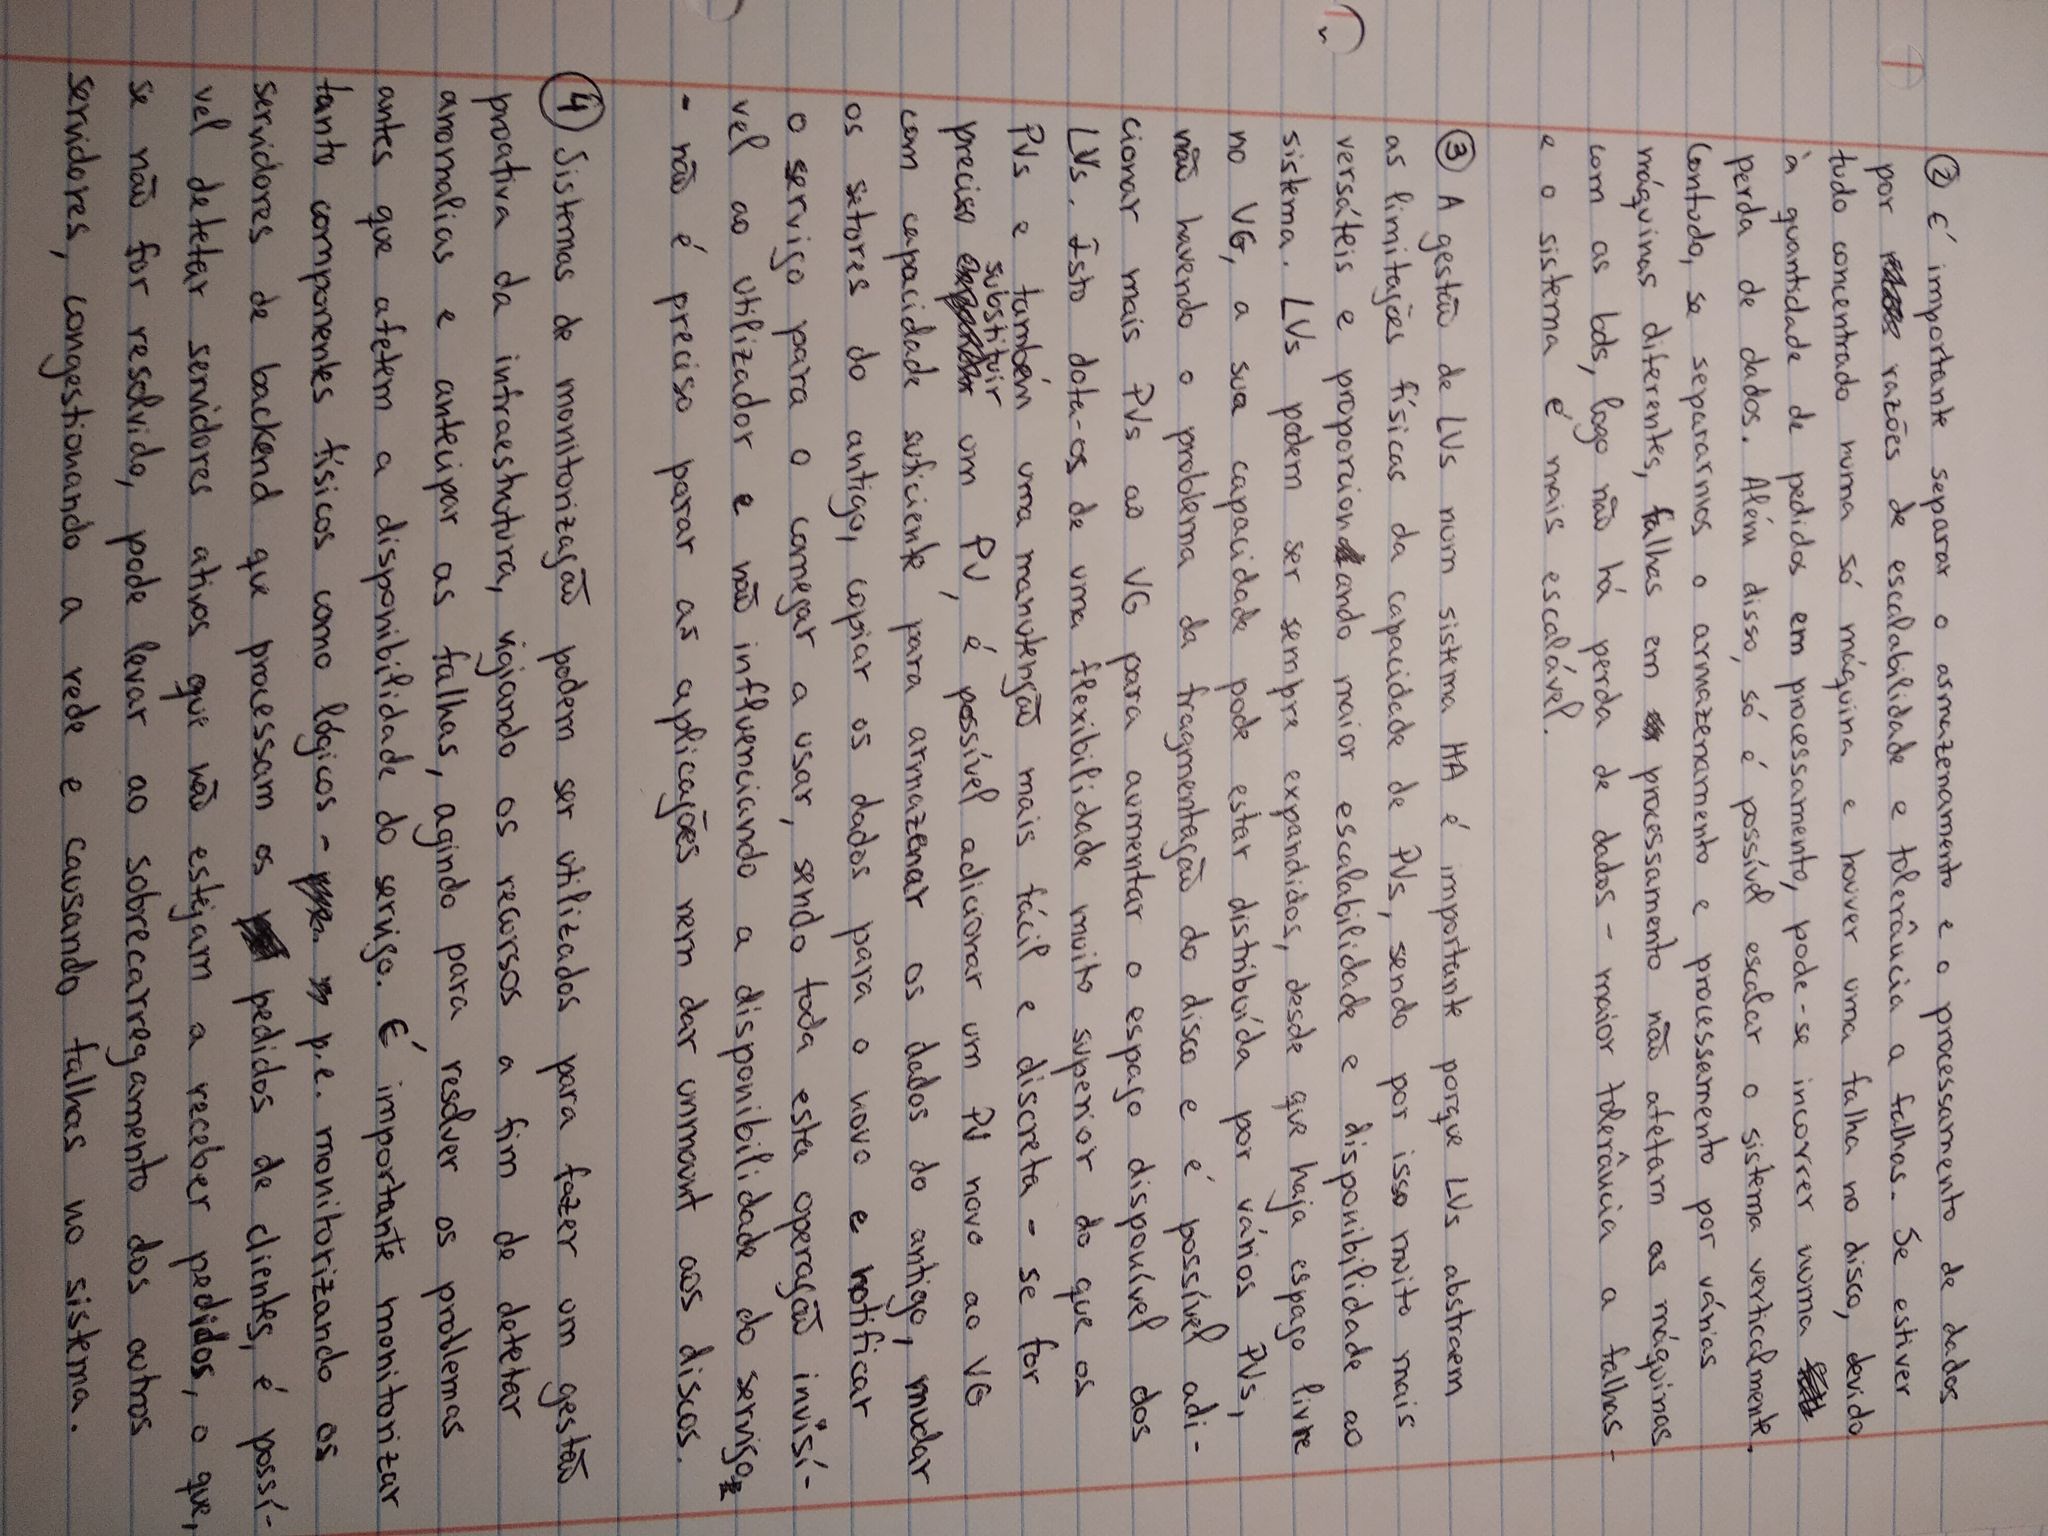 ② É importante separar o armazenamento e o processamento de dados
por razões de escalabilidade e tolerância a falhas. Se estiver
tudo concentrado numa só máquina e houver uma falha no disco, devido
à quantidade de pedidos em processamento, pode-se incorrer numa
perda de dados. Além disso, só é possível escalar o sistema verticalmente.
Contudo, se separarmos o armazenamento e processamento por várias
máquinas diferentes, falhas em processamento não afetam as máquinas
com as bds, logo não há perda de dados - maior tolerância a falhas -
e o sistema é mais escalável.
③ A gestão de LVs num sistema HA é importante porque LVs abstraem
as limitações físicas da capacidade de PVs, sendo por isso muito mais
versáteis e proporcionando maior escalabilidade e disponibilidade ao
sistema. LVs podem ser sempre expandidos, desde que haja espaço livre
no VG, a sua capacidade pode estar distribuída por vários PVs,
não havendo o problema da fragmentação do disco e é possível adi-
cionar mais PVs ao VG para aumentar o espaço disponível dos
LVs. Isto dota-os de uma flexibilidade muito superior do que os
PVs e também uma manutenção mais fácil e discreta - se for
preciso substituir um PV, é possível adicionar um PV novo ao VG
com capacidade suficiente para armazenar os dados do antigo, mudar
os setores do antigo, copiar os dados para o novo e notificar
o serviço para o começar a usar, sendo toda esta operação invisí-
vel ao utilizador e não influenciando a disponibilidade do serviço
- não é preciso parar as aplicações nem dar unmount aos discos.
④ Sistemas de monitorização podem ser utilizados para fazer um gestão
proativa da infraestrutura, vigiando os recursos a fim de detetar
anomalias e antecipar as falhas, agindo para resolver os problemas
antes que afetem a disponibilidade do serviço. É importante monitorizar
tanto componentes físicos como lógicos - p.e. monitorizando os
servidores de backend que processam os pedidos de clientes, é possí-
vel detetar servidores ativos que não estejam a receber pedidos, o que,
se não for resolvido, pode levar ao sobrecarregamento dos outros
servidores, congestionando a rede e causando falhas no sistema.